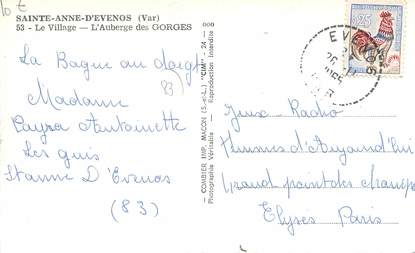 10 F
SAINTE-ANNE-D'EVENOS (Var)
53 - Le Village — L'Auberge des GORGES
La Bague au doigt
83
Madame
Payra Antoinette
Les quis
St anne D'Evenos
(83)
COMBIER IMP. MACON (S.-et-L.) "CIM" - 24 —
Photographie Véritable - Reproduction Interdite
25
EVENOS
26
1965
Jeux Radio
Femmes d'Aujourd'hui
Grand point des champs
Elyses Paris